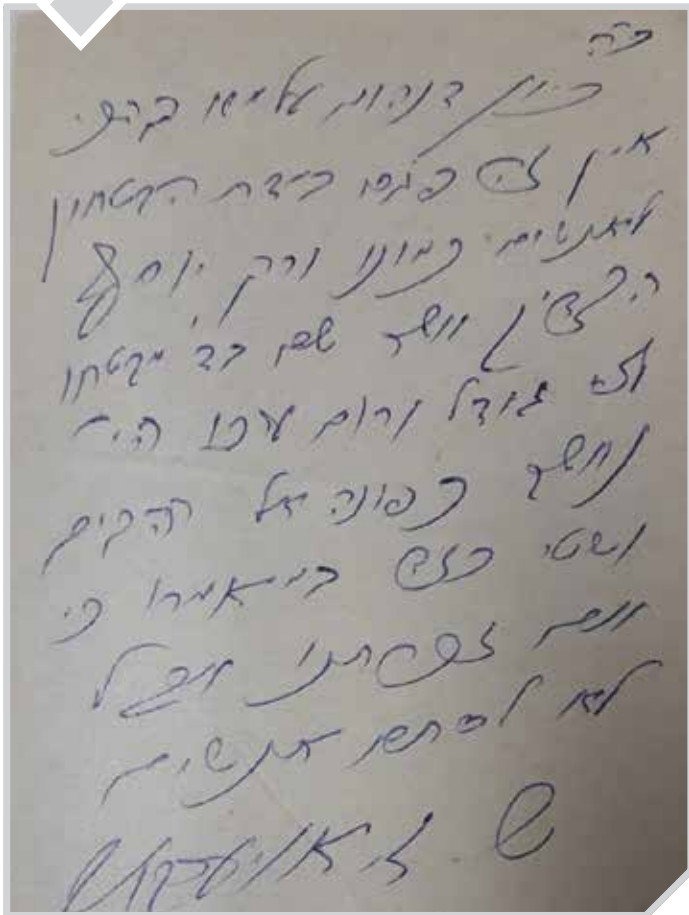 ב"ה
כיון דנהוג עלמא בהכי
אין זה פגם במדת הבטחון
לאנשים כמונו ורק יוסף
הצדיק אשר שם בד' מבטחו
גודל ורום ערכו הי'
נחשב כפונה אל רהבים
ושטי כזב במאמרו כי
אם זכרתני אבל
לא לסתם אנשים
ש ז אויערבאך